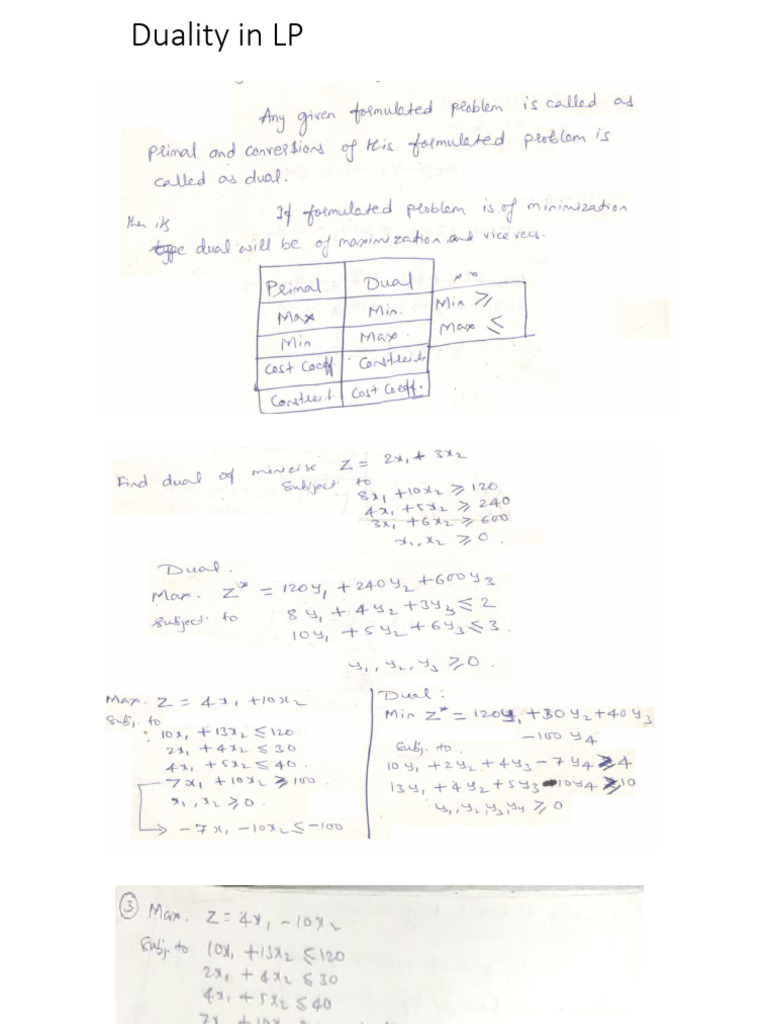 Duality in LP
Any given formulated problem is called as
primal and conversions of this formulated problem is
called as dual.
If formulated problem is of minimization
then its
type dual will be of maximization and vice vers.
Primal Dual
Max Min. Min ≥
Min Max. Max ≤
Cost Coeff. Constraints
Constraint Cost Coeff.
Find dual of minimise Z = 2x₁ + 3x₂
Subject to
8x₁ + 10x₂ ≥ 120
4x₁ + 5x₂ ≥ 240
3x₁ + 6x₂ ≥ 600
x₁, x₂ ≥ 0.
Dual.
Max. Z* = 120y₁ + 240y₂ + 600y₃
Subject to 8y₁ + 4y₂ + 3y₃ ≤ 2
10y₁ + 5y₂ + 6y₃ ≤ 3.
y₁, y₂, y₃ ≥ 0.
Max. Z = 4x₁ + 10x₂
Subj. to
10x₁ + 13x₂ ≤ 120
2x₁ + 4x₂ ≤ 30
4x₁ + 5x₂ ≤ 40.
7x₁ + 10x₂ ≥ 100.
x₁, x₂ ≥ 0.
→ -7x₁ - 10x₂ ≤ -100
Dual:
Min Z* = 120y₁ + 30y₂ + 40y₃
- 100y₄
Subj. to
10y₁ + 2y₂ + 4y₃ - 7y₄ ≥ 4
13y₁ + 4y₂ + 5y₃ - 10y₄ ≥ 10
y₁, y₂, y₃, y₄ ≥ 0
③ Max. Z = 4x₁ - 10x₂
Subj. to 10x₁ + 13x₂ ≤ 120
2x₁ + 4x₂ ≤ 30
4x₁ + 5x₂ ≤ 40